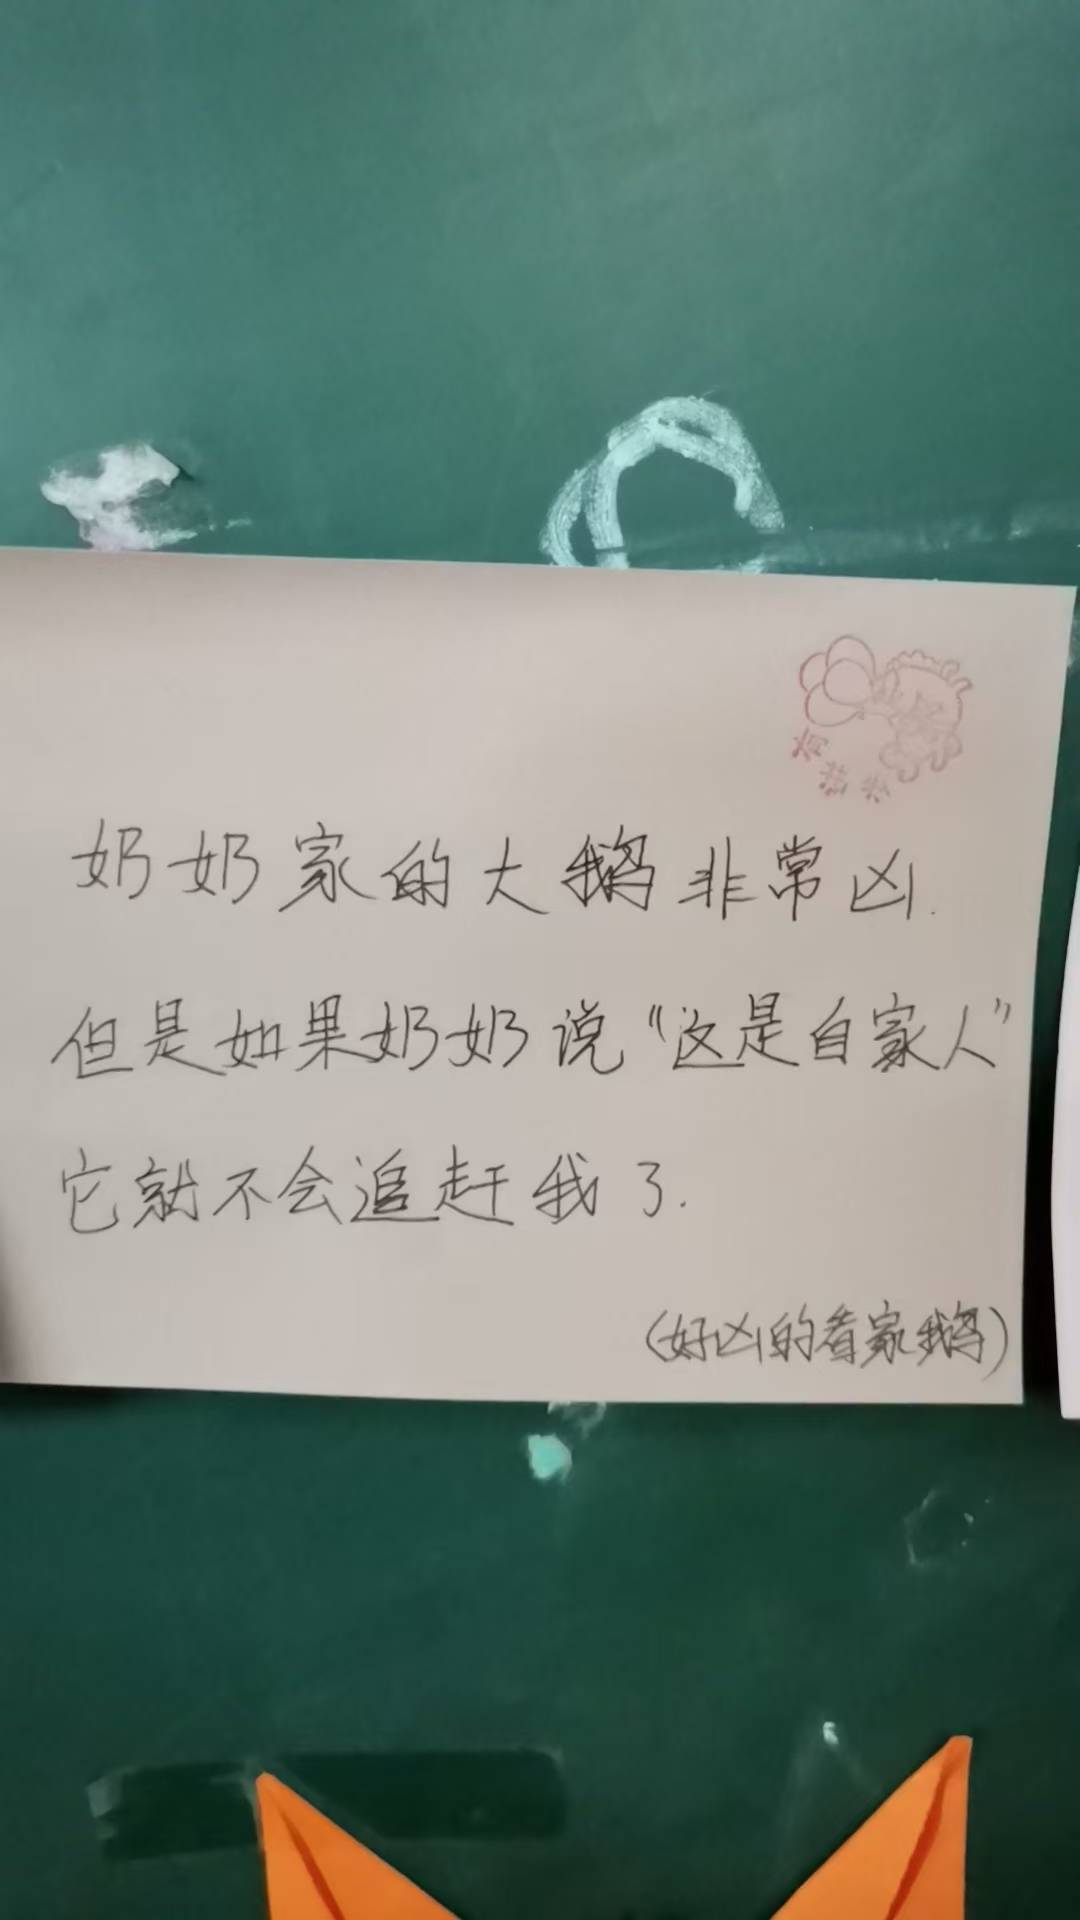 奶奶家的大鹅非常凶.
但是如果奶奶说“这是自家人”
它就不会追赶我了.
(好凶的看家鹅)